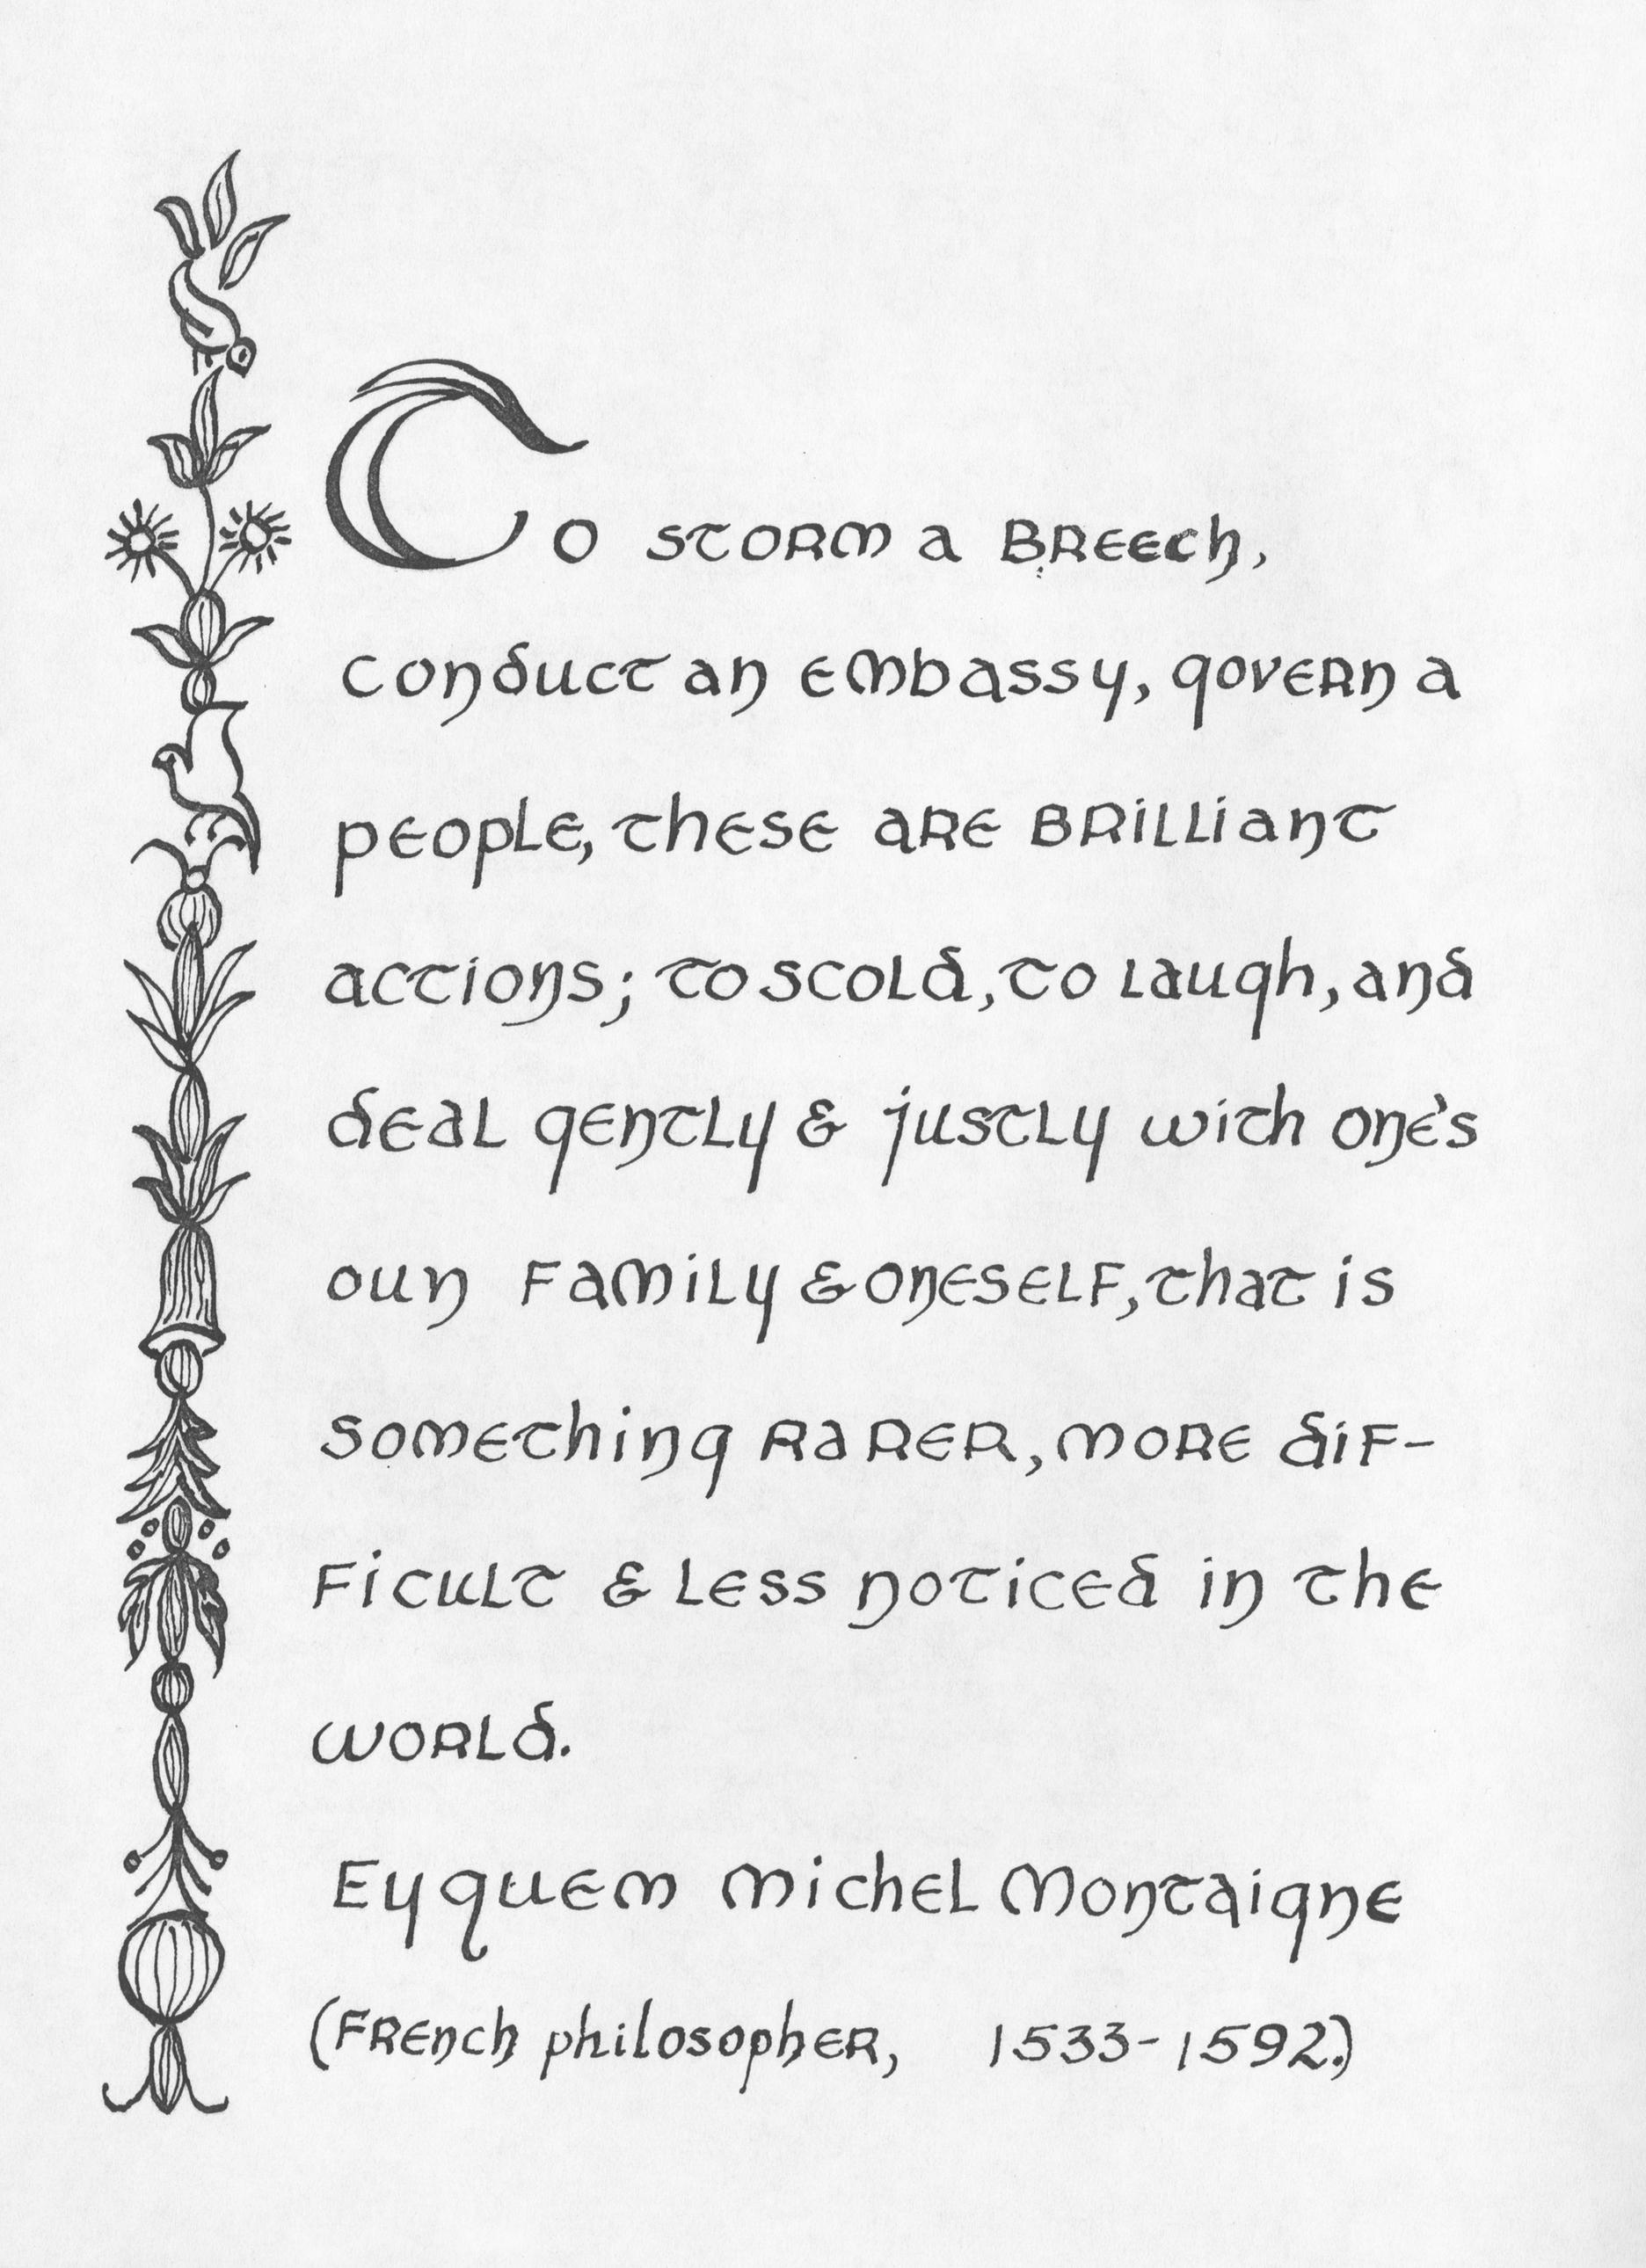 To storm a breech,
conduct an embassy, govern a
people, these are brilliant
actions; to scold, to laugh, and
deal gently & justly with one's
oun family & oneself, that is
something rarer, more dif-
ficult & less noticed in the
world.
Eyquem Michel Montaigne
(French philosopher, 1533-1592.)